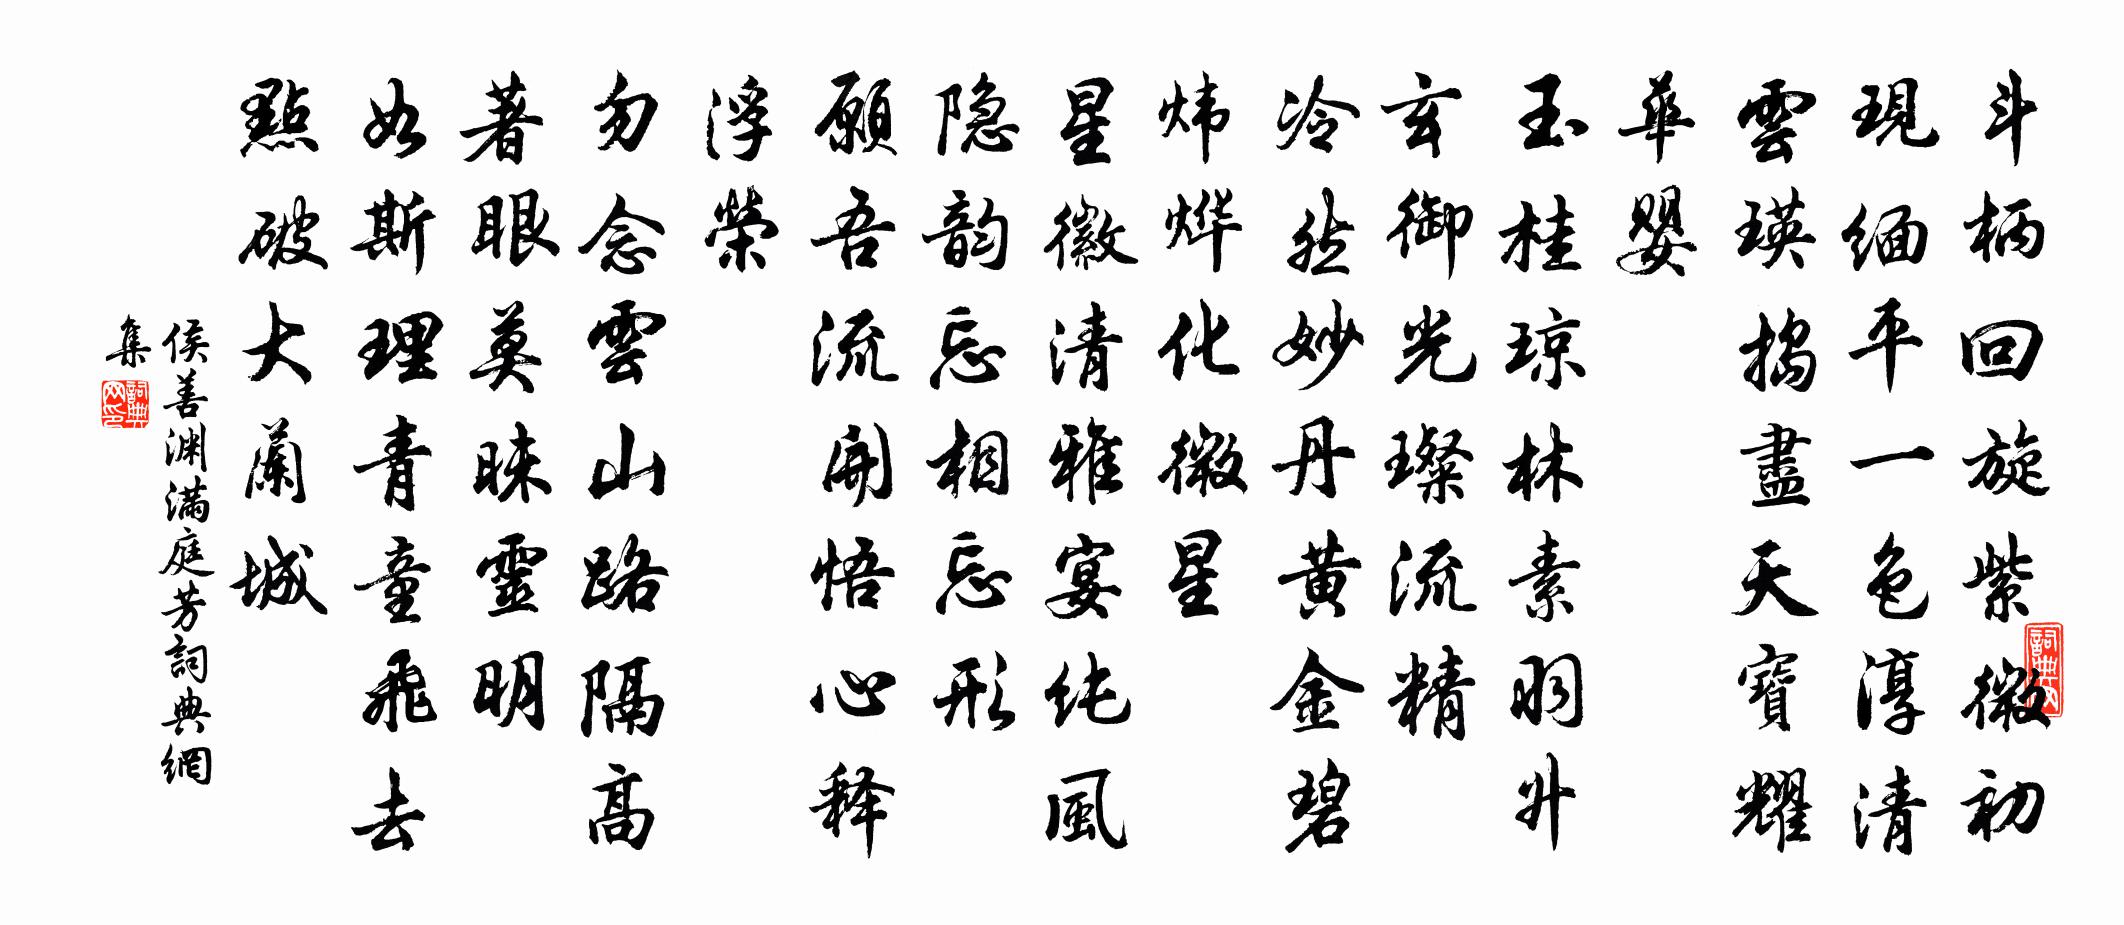 斗柄回旋紫微初
現缅平一色淳清
雲瑛捣盡天寶耀
華婴
玉桂琼林素羽升
玄御光璨流精
冷然妙丹黄金碧
炜烨化微星
星徽清雅宴纯風
隐韵忘相忘形
願吾流開悟心释
浮榮
勿念雲山路隔高
著眼莫睐靈明
如斯理青童飛去
點破大蘭城
侯善渊满庭芳詞典網
集